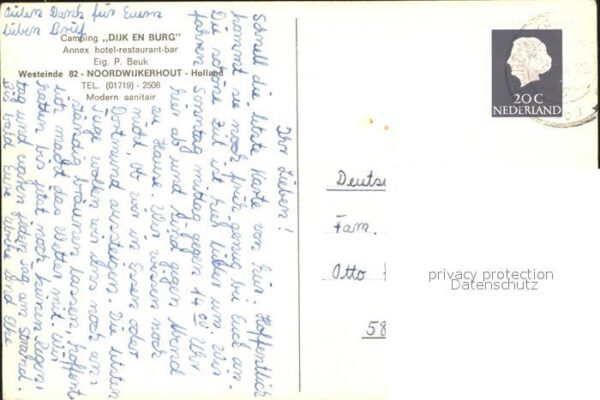 vielen Dank für Euern
lieben Brief.
Camping „DIJK EN BURG"
Annex hotel-restaurant-bar
Eig. P. Beuk
Westeinde 82 - NOORDWIJKERHOUT - Holland
TEL. (01719) - 2508
Modern sanitair
Ihr Lieben!
Schnell die letzte Karte von hier. Hoffentlich
kommt sie noch früh genug bei Euch an.
Die schöne Zeit ist hier leider um. Wir
fahren Sonntag mittag gegen 14 00 Uhr
hier ab und sind gegen Abend
zu Hause. Wir wissen noch
nicht, ob wir in Essen oder
Dortmund aussteigen. Die letzten
Tage wollen wir uns noch an-
ständig bräunen lassen, hoffent-
lich macht das Wetter mit. Wir
hatten bis jetzt noch keinen Regen-
tag und waren jeden Tag am Strand.
Bis bald Eure Ulrike und Elke
20 C
NEDERLAND
Deutsc
Fam.
Otto
58
privacy protection
Datenschutz